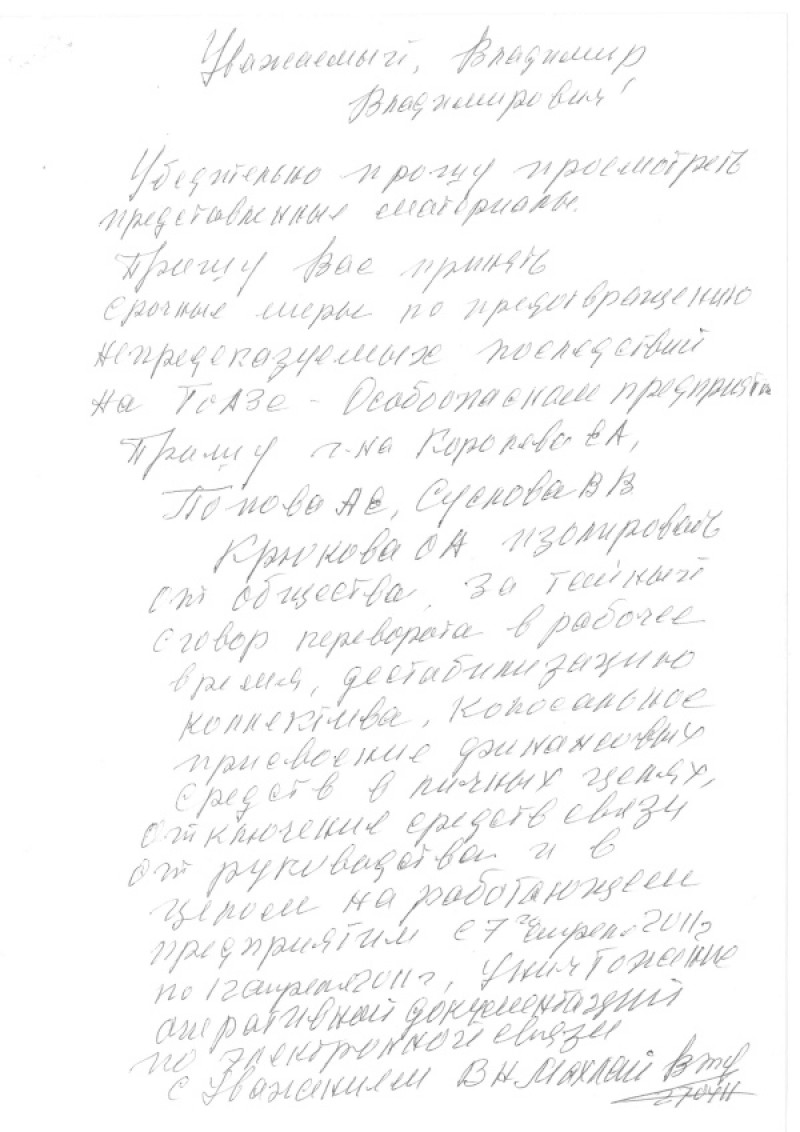 Уважаемый, Владимир
Владимирович!
Убедительно прошу просмотреть
представленные материалы.
Прошу Вас принять
срочные меры по предотвращению
непредсказуемых последствий
на ТоАЗе - Особоопасном предприятии
Прошу г-на Королева ЕА,
Попова АЕ, Суслова ВВ
Крюкова ОА изолировать
от общества за тайный
сговор переворота в рабочее
время, дестабилизацию
коллектива, колосальное
присвоение финансовых
средств в личных целях,
отключение средств связи
от руководства и в
целом на работающем
предприятии с 7 апреля 2011г
по 12 апреля 2011 г, уничтожение
оперативной документаций
по электронной связи
с Уважением ВН Махлай